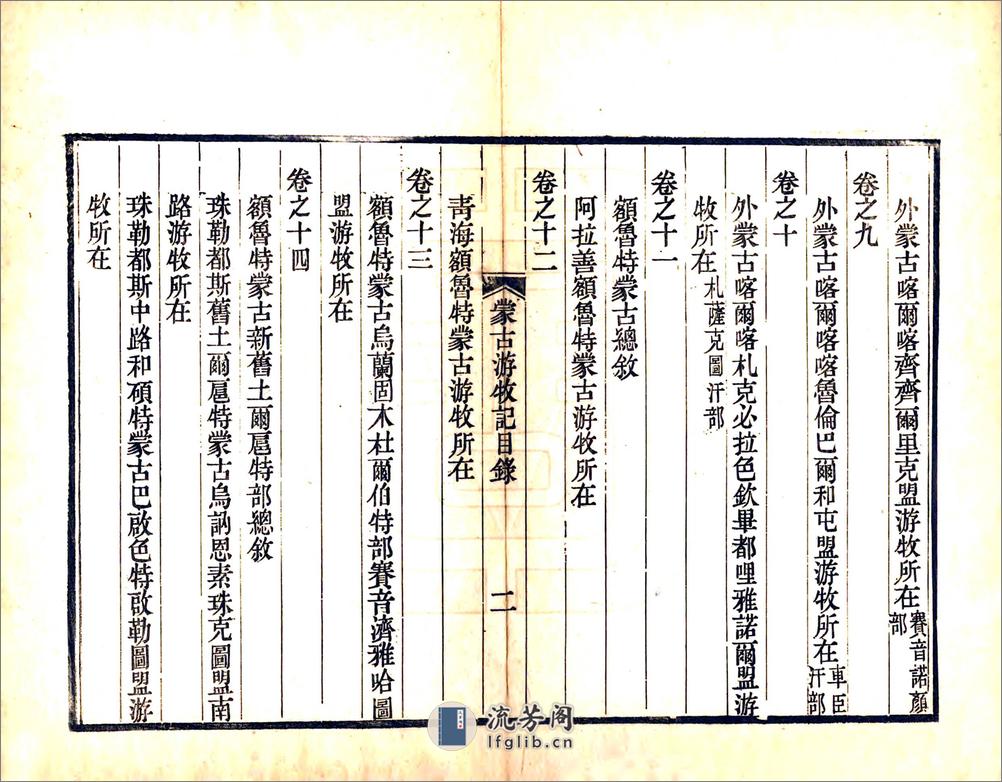 外蒙古喀爾喀齊齊爾里克盟游牧所在賽音諾顏部
卷之九
外蒙古喀爾喀喀魯倫巴爾和屯盟游牧所在車臣汗部
卷之十
外蒙古喀爾喀札克必拉色欽畢都哩雅諾爾盟游
牧所在札薩克圖汗部
卷之十一
額魯特蒙古總敘
阿拉善額魯特蒙古游牧所在
卷之十二
蒙古游牧記目錄
二
青海額魯特蒙古游牧所在
卷之十三
額魯特蒙古烏蘭固木杜爾伯特部賽音濟雅哈圖
盟游牧所在
卷之十四
額魯特蒙古新舊土爾扈特部總敘
珠勒都斯舊土爾扈特蒙古烏訥恩素珠克圖盟南
路游牧所在
珠勒都斯中路和碩特蒙古巴啟色特啟勒圖盟游
牧所在
流芳阁
lfglib.cn